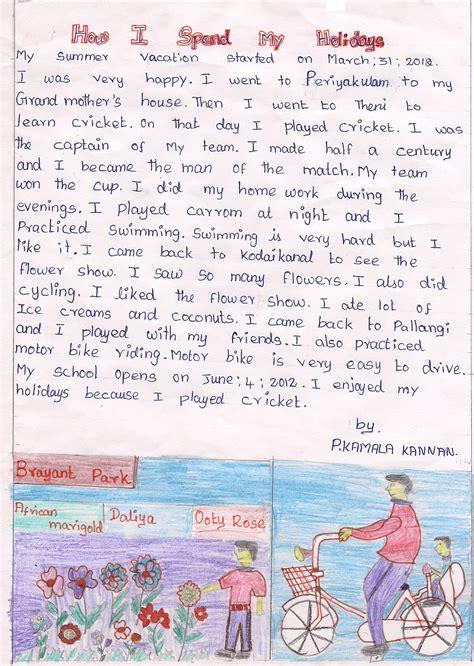 How I Spend My Holidays
My summer vacation started on March;31;2012.
I was very happy. I went to Periyakulam to my
Grand mother's house. Then I went to Theni to
learn cricket. On that day I played cricket. I was
the captain of My team. I made half a century
and I became the man of the match. My team
won the cup. I did my home work during the
evenings. I played carrom at night and I
Practiced swimming. Swimming is very hard but I
like it. I came back to Kodaikanal to see the
flower show. I saw so many flowers. I also did
cycling. I liked the flower show. I ate lot of
Ice creams and coconuts. I came back to Pallangi
and I played with my friends. I also practiced
motor bike riding. Motor bike is very easy to drive.
My school opens on June;4;2012. I enjoyed my
holidays because I played cricket.
by.
P.KAMALA KANNAN.
Brayant Park
African marigold
Daliya
Ooty Rose